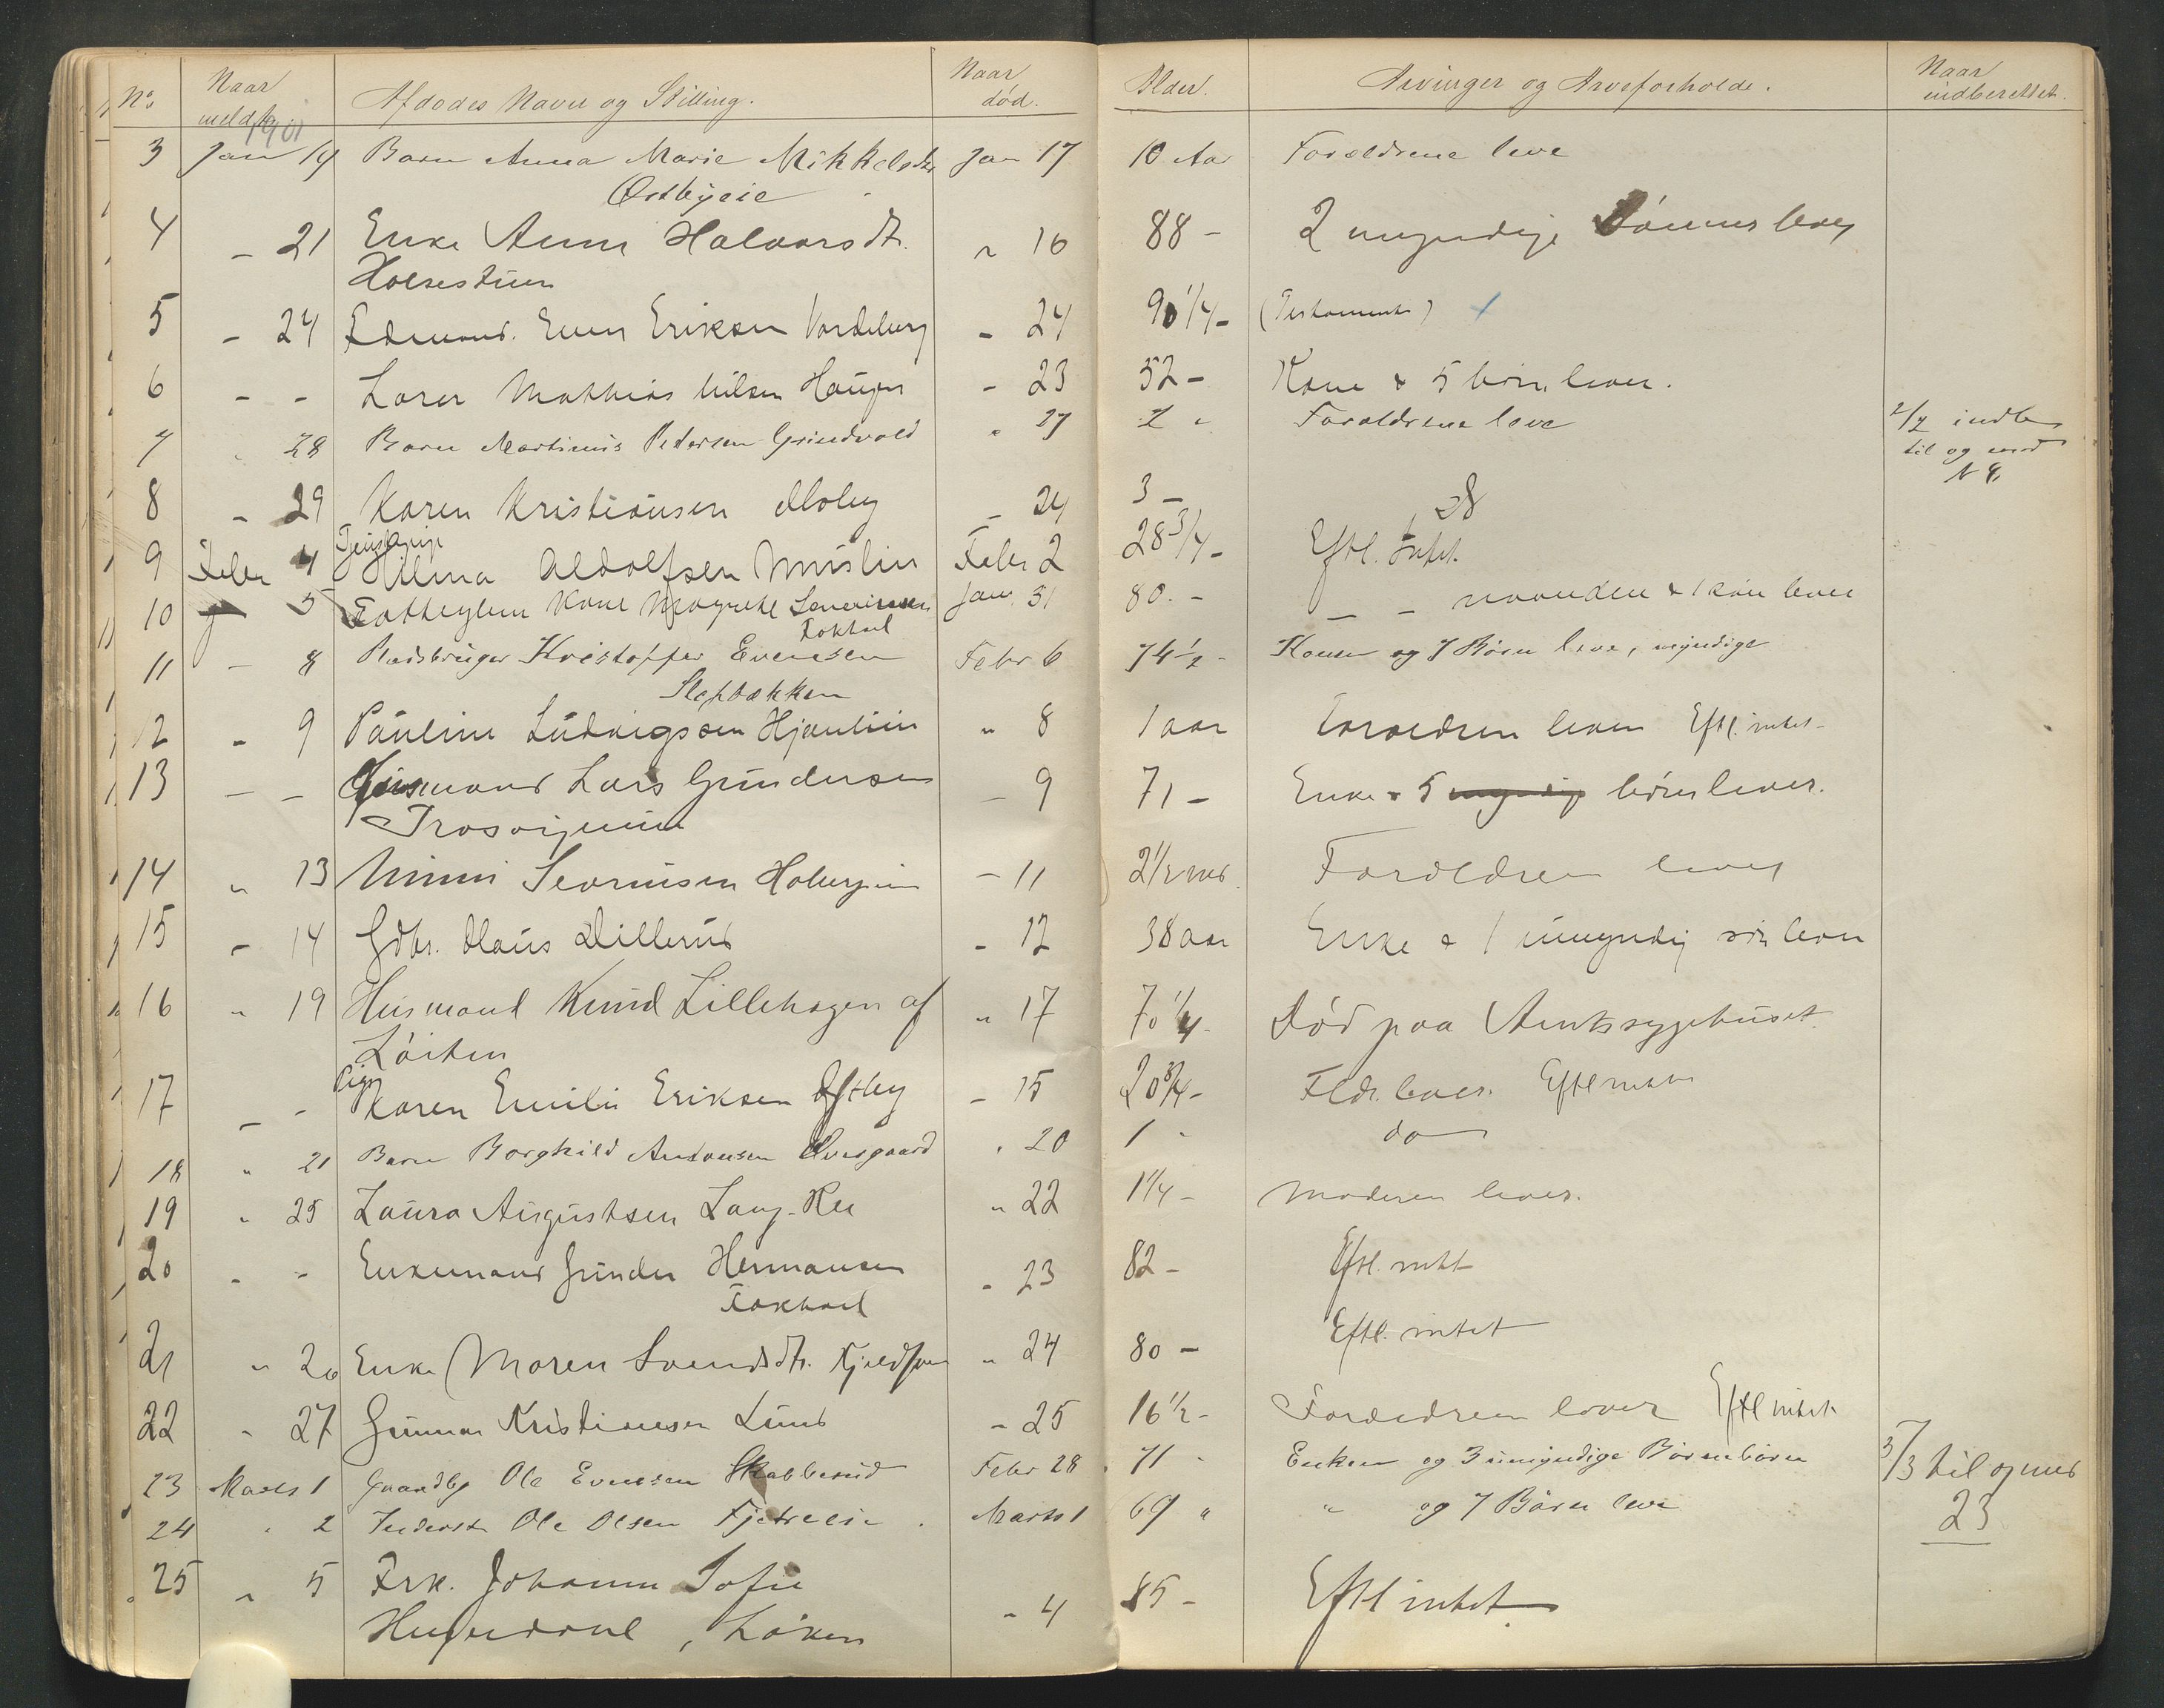 No. Naar meldt. Afdødes Navn og Stilling. Naar død. Alder. Arvinger og Arveforholde. Naar indberettet.
1901
3 Jan 19 Barn Anna Marie Mikkelsdtr Jan 17 10 Aar Forældrene leve
Østbyeie
4 - 21 Enke Anne Halvorsdt. " 16 88 - 2 myndige Sønner lever
5 - 24 Even Eriksen - 24 90 1/4 - (Testamente)
6 - - Mathias Nilsen - 23 52 - Kone & 5 børn lever.
7 " 28 Barn Martinius Petersen Grindvold " 27 Forældrene leve 2/2 indb
til og med
N 8.
8 - 29 Karen Kristiansen Moby - 24 3 -
9 Febr 4 Hilma Adolfsen Febr 2 28 3/4 - Eftl. intet.
10 5 Fattiglem Kone Magrete Jan. 31 80. - - - manden & 1 søn lever
Fokhol
11 - 8 Pladsbruger Kristoffer Evensen Febr 6 74 1/2 - Konen og 7 Børn leve, myndige
12 - 9 Pauline Ludvigsen " 8 1 aar Foreldren lever Eftl. intet -
13 - - Husmand Lars Gundersen - 9 71 - Enke & 5 børn lever.
14 " 13 - 11 2 1/2 Foreldren lever
15 - 14 Gdbr. Olaus Dillerud - 12 38 aar Enke & 1 umyndig søn lever
16 " 19 Husmand Knud Lillehagen af " 17 70 1/4 - Død paa Amtssygehuset.
Løiten
17 - - Pige Karen Emilie Eriksen Østby - 15 20 3/4 - Fldr. lever. Eftl intet
18 " 21 Barn Borghild Antonsen " 20 1 - do
19 " 25 Laura Augustsen " 22 1 1/4 - Moderen lever.
20 - - Enkemand Gunder Hermansen - 23 82 - Eftl. intet
Fokhol
21 " 26 Enke Maren Svendsdtr. " 24 80 - Eftl. intet
22 " 27 Gunnar Kristiansen Lund - 25 16 1/2 - Foreldren lever Eftl intet
23 Marts 1 Gaardbr Ole Evensen Skabberud Febr 28 71 - Enken og 3 umyndige Børnebørn 3/3 til og med
24 " 2 Inderst Ole Olsen Fjetreeie Marts 1 69 " " og 7 Børn leve 23
25 " 5 Frk. Johanne Sofie
- 4 85 - Eftl intet